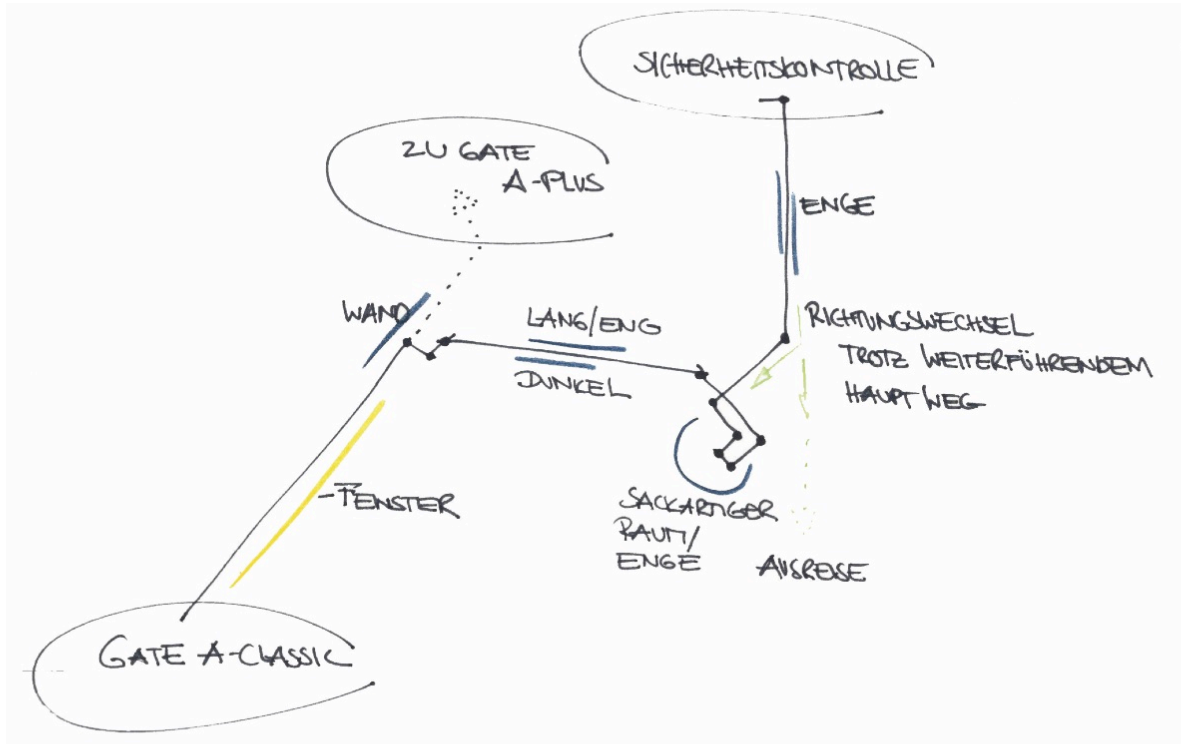 SICHERHEITSKONTROLLE
ZU GATE
A-PLUS
ENGE
WAND
LANG/ENG
DUNKEL
RICHTUNGSWECHSEL
TROTZ WEITERFÜHRENDEM
HAUPTWEG
-FENSTER
SACKARTIGER
RAUM/
ENGE
AUSREISE
GATE A-CLASSIC